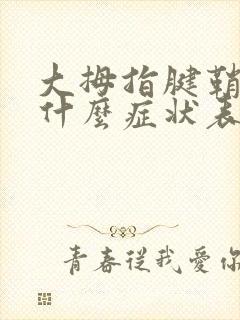 大拇指腱鞘
什麼症状表
青春從我愛你